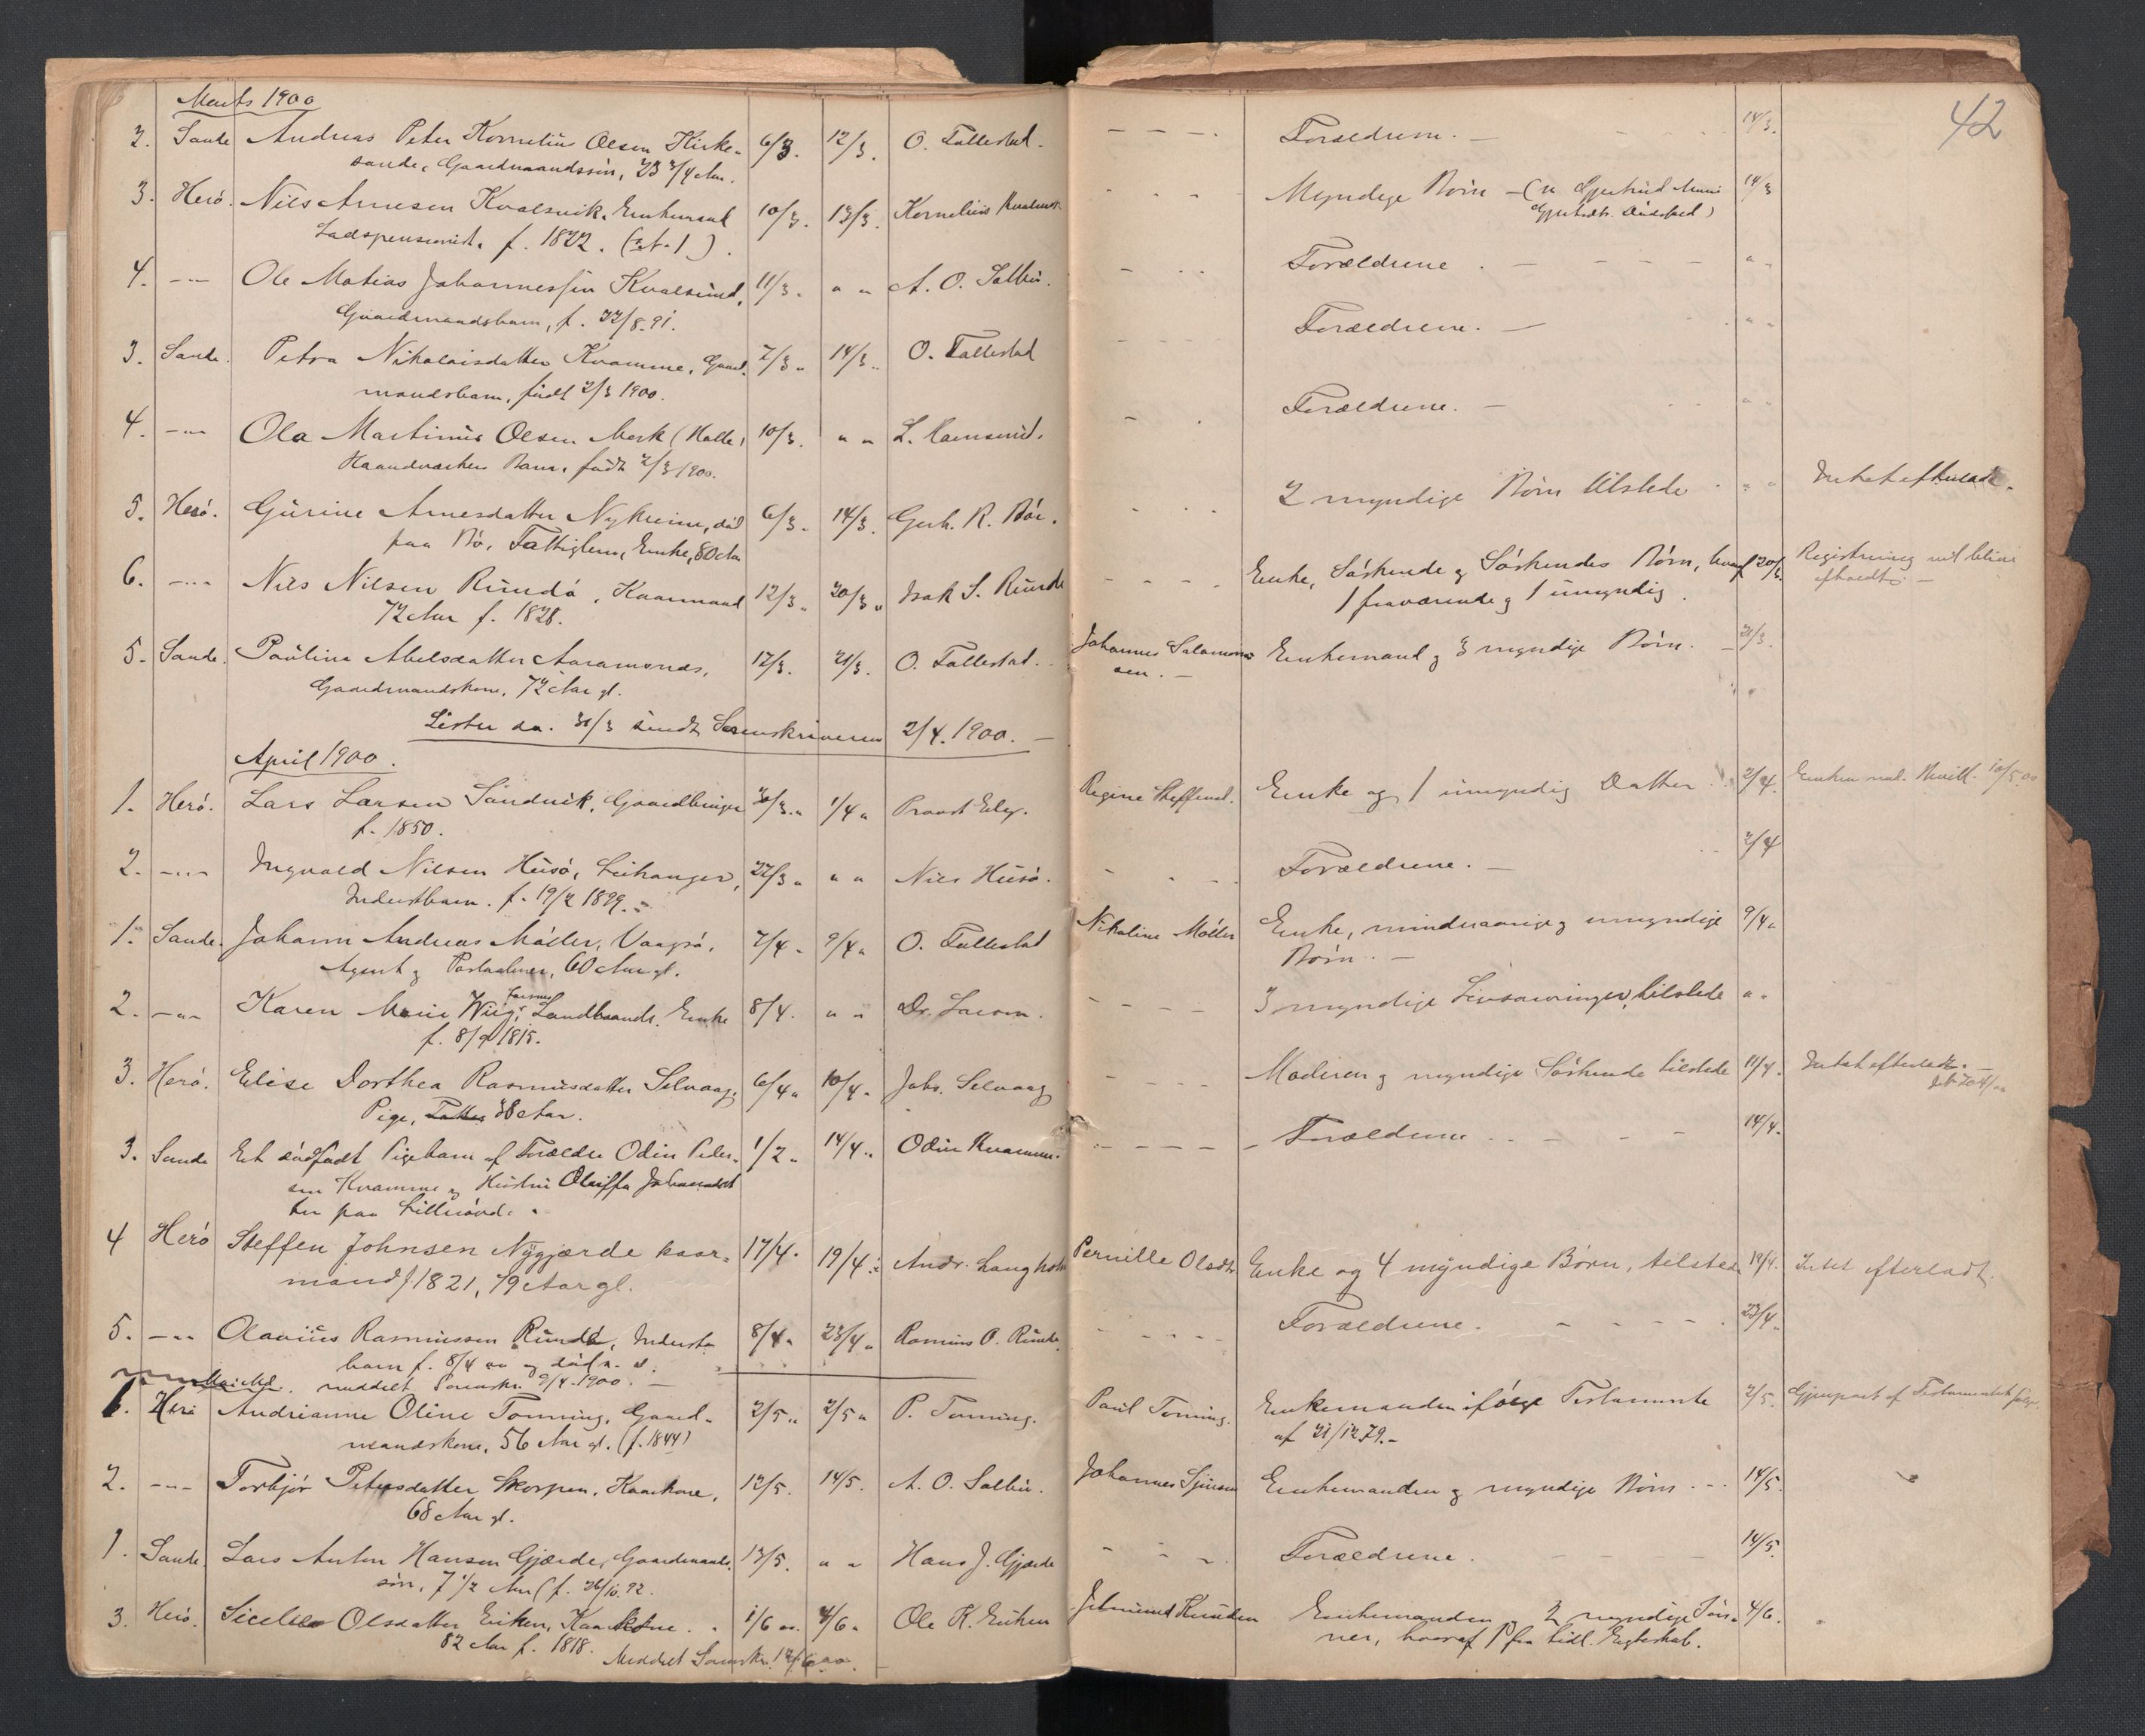 42
Marts 1900
2. Sande Andreas Peter Kornelius Olsen Kirke- 6/3. 12/3. O. Tallestad. - - - . Forældrene. - 14/3.
sande, Gaardmandssön, 23 3/4 Aar.
3. Herö. Nils Arnesen Kvalsvik, Enkemand 10/3. 13/3. Kornelius Kvalsvik - - - Myndige Börn - ( 14/3
Ladspensionist. f. 1822. ( 1 ).
4. -"- Ole Matias Johannessen Kvalsund, 11/3. " " A. O. Sætre. - - - Forældrene . - - - - " "
Gaardmandsbarn, f. 22/8-91.
3. Sande. Petra Nikolaisdatter Kvamme, Gaard- 7/3. 14/3. O. Tallestad - - - Forældrene. - " "
mandsbarn, födt 2/3 1900.
4. -"- Ola Martinus Olsen Mork (Halle) 10/3. " " L. Hamsund. - . Forældrene. - " "
Haandværkers Barn, födt 2/3 1900.
5. Herö. Gurine Arnesdatter Nykreim, död 6/3. 14/3. Gerh. R. Bö. - - - 2 myndige Börn tilstede " " Intet efterladt.
paa Bö, Fattiglem, Enke, 80 Aar
6. -"- Nils Nilsen Rundö, Kaarmand 12/3. 20/3. Isak S. Runde - - - - Enke, Söskende og Söskendes Börn, hvoraf 20/3. Registrering vil blive
72 Aar f. 1828. 1 fraværende og 1 umyndig. afholdt. -
5. Sande. Paulina Abelsdatter Aaramsnes, 17/3. 21/3. O. Tallestad. Johannes Salamons- Enkemand og 3 myndige Börn. - 21/3.
Gaardmandskone, 72 Aar gl. sen. -
Lister da. 31/3 sendt Sorenskriveren 2/4. 1900. -
April 1900.
1. Herö. Lars Larsen Sandvik, Gaardbruger 30/3. 1/4. Provst Regine Steffensd. Enke og 1 umyndig Datter 2/4. Enken 10/5 00
f. 1850.
2. -"- Ingvald Nilsen Husö, Leikanger, 22/3. " " Nils Husö. - - - Forældrene. - 2/4
Inderstbarn. f. 19/2 1899.
1. Sande. Johann Andreas Möller, Vaagsö, 7/4. 9/4. O. Tallestad Nikoline Möller Enke, mindreaarige og umyndige 9/4.
Agent og Postaabner, 60 Aar gl. Börn. -
2. -"- Karen Marie Wiig, Landhandl. Enke 8/4. " " Dr. Larsen. - - - 3 myndige Livsarvinger tilstede " "
f. 8/9 1815.
3. Herö. Elise Dorthea Rasmusdatter Selvaag, 6/4. 10/4. Johs. Selvaag - - - - Moderen og myndige Söskende tilstede 11/4. Intet efterladt. -
Pige, 38 Aar.
3. Sande Et dödfödt Pigebarn af Forældre Odin Peder- 1/2. 14/4. Odin Kvamme. - - - - Forældrene - - - 14/4.
sen Kvamme og Hustru Oluffa Johannesdat
ter paa
4 Herö Steffen Johnsen Nygjærde kaar- 17/4. 19/4. Andr. Langholm Pernille Olsdtr. Enke og 4 myndige Börn, tilstede 19/4. Intet efterladt.
mand f 1821, 79 Aar gl.
5. -"- Olavius Rasmussen Runde, Inderst- 8/4. 23/4. Rasmus O. Runde. - - - - Forældrene. - - - - 23/4.
barn f. 8/4 00 og död
Mai Md. meddelt Sorenskr. 9/4-1900. -
1. Herö Andrianne Oline Tonning, Gaard- 2/5. 2/5. P. Tonning. Paul Tonning. Enkemanden ifölge Testamente 2/5. Gjenpart af Testamentet fölger.
mandskone, 56 Aar gl. (f. 1844) af 21/12 79. -
2. -"- Torbjör Petersdatter Skorpen, Kaarkone, 12/5. 14/5. A. O. Sætre. Johannes Enkemanden og myndige Börn. - - 14/5.
68 Aar gl.
1. Sande. Lars Anton Hansen Gjærde, Gaardmands- 13/5. " " Hans J. Gjærde - - - Forældrene. 14/5.
sön, 7 1/2 Aar (f. 26/10. 92.
3. Herö. Olsdatter Eiken, Kaarkone. 1/6 4/6. Ole K. Eiken Knudsen Enkemanden og 2 myndige Sön- 4/6.
82 Aar f. 1818. Meddelt Sorenskr. 12/6 00. - ner, hvoraf 1 fra tidl. Egteskab.